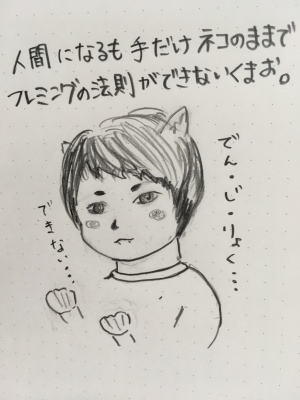 人間になるも手だけネコのままで
フレミングの法則ができないくまお。
でん・じ・りょく・・・
できない・・・